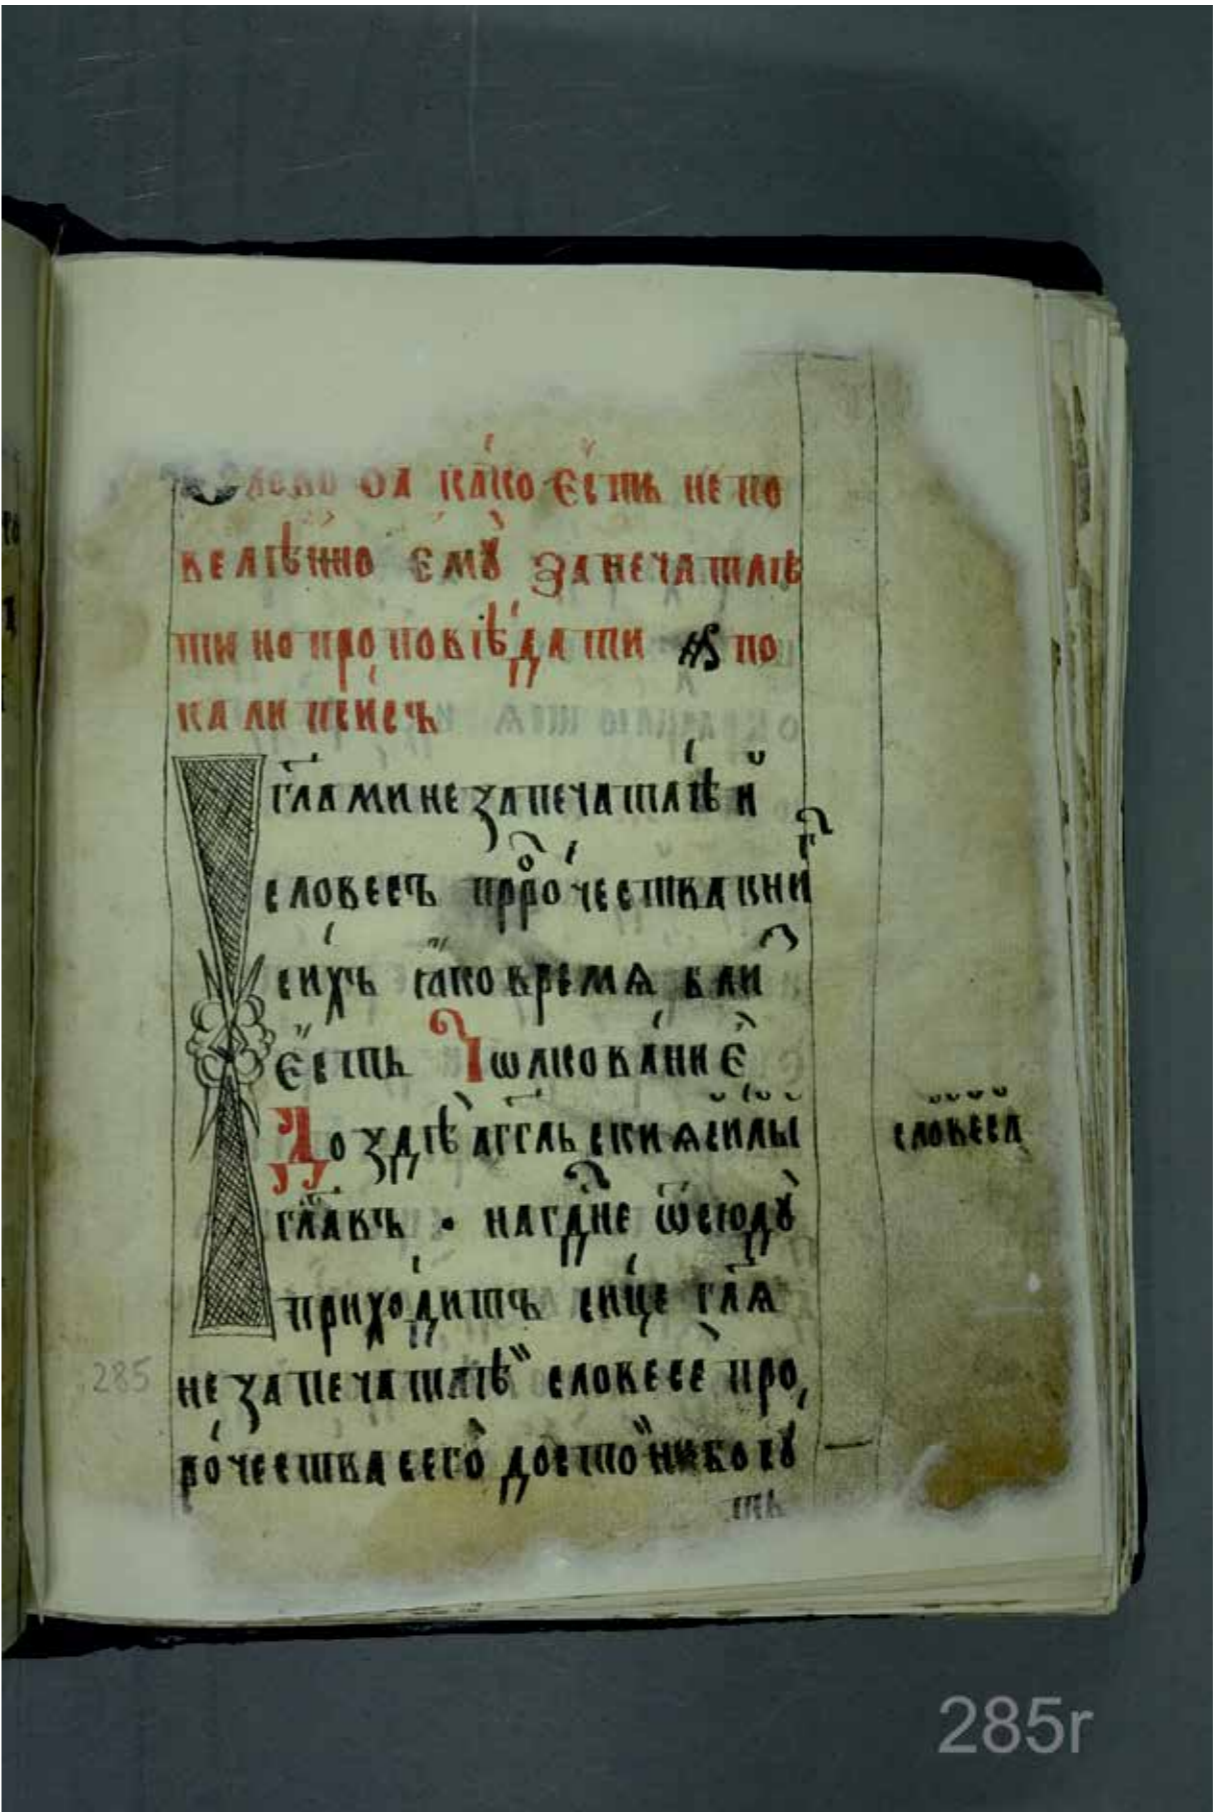 Слово ѻ҃а ка́ко є҆́сть не по
велѣ́нно є҆мꙋ̀ запечатлѣ
ти но проповѣ́дати н҃ѕ по
калипсисъ
И гл҃а ми не запечатлѣ́й
словесъ прⷪ҇ро́чества кни́гъ
си́хъ ꙗ҆́ко время бли́з
є҆́сть Толкова́ниє
До здѣ̀ а҆гг҃льскиѧ силы
гл҃авъ • на гдⷭ҇не ѿсюдꙋ̀
прихо́дитъ си́це гл҃ѧ
не запечатлѣй словесе про
ро́чества сего̀ досто́ини бо сꙋ
ть
словеса
285
285r